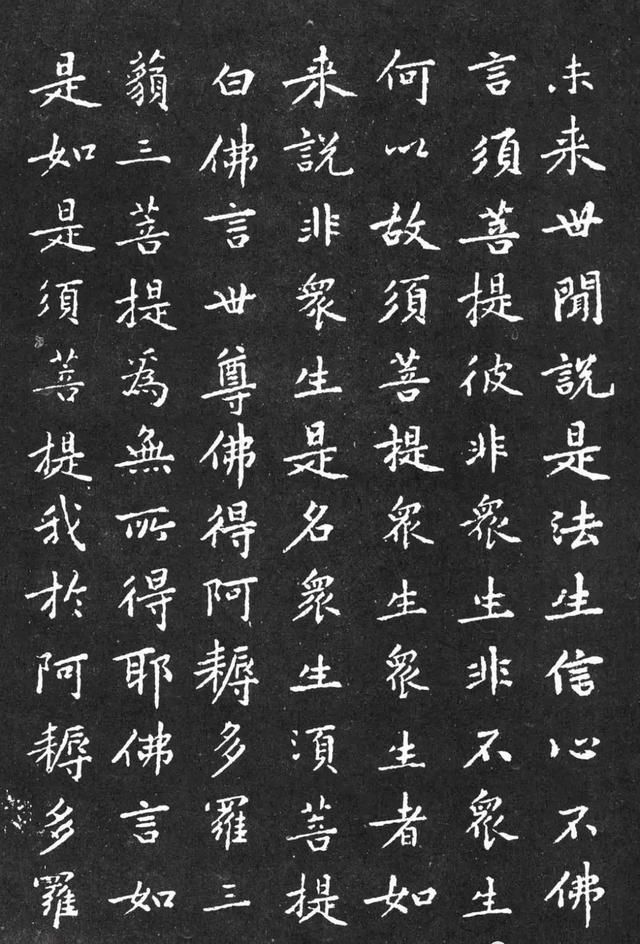 未来世聞說是法生信心不佛
言須菩提彼非眾生非不眾生
何以故須菩提眾生眾生者如
来說非眾生是名眾生須菩提
白佛言世尊佛得阿耨多羅三
藐三菩提為無所得耶佛言如
是如是須菩提我於阿耨多羅